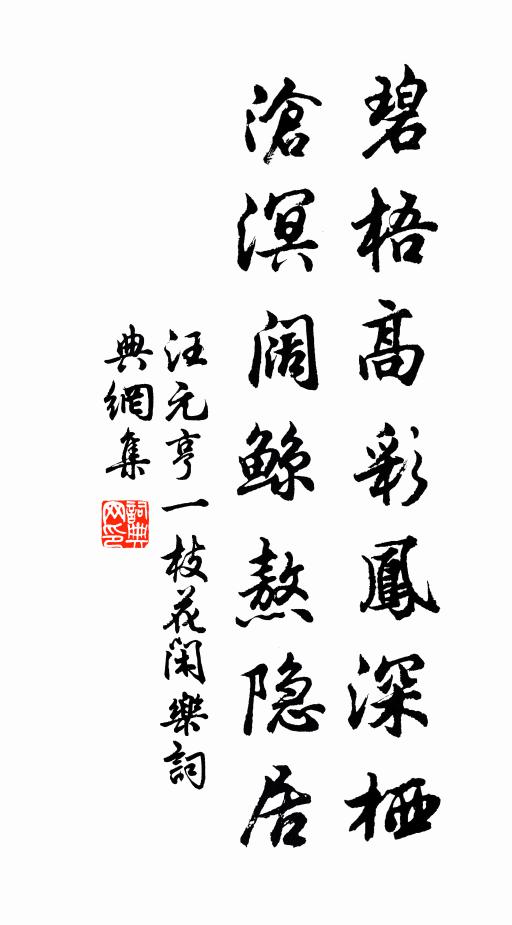 碧梧高彩鳳深栖
滄溟闊鲸熬隐居
汪元亨一枝花閑樂詞
典網集
詞典网印